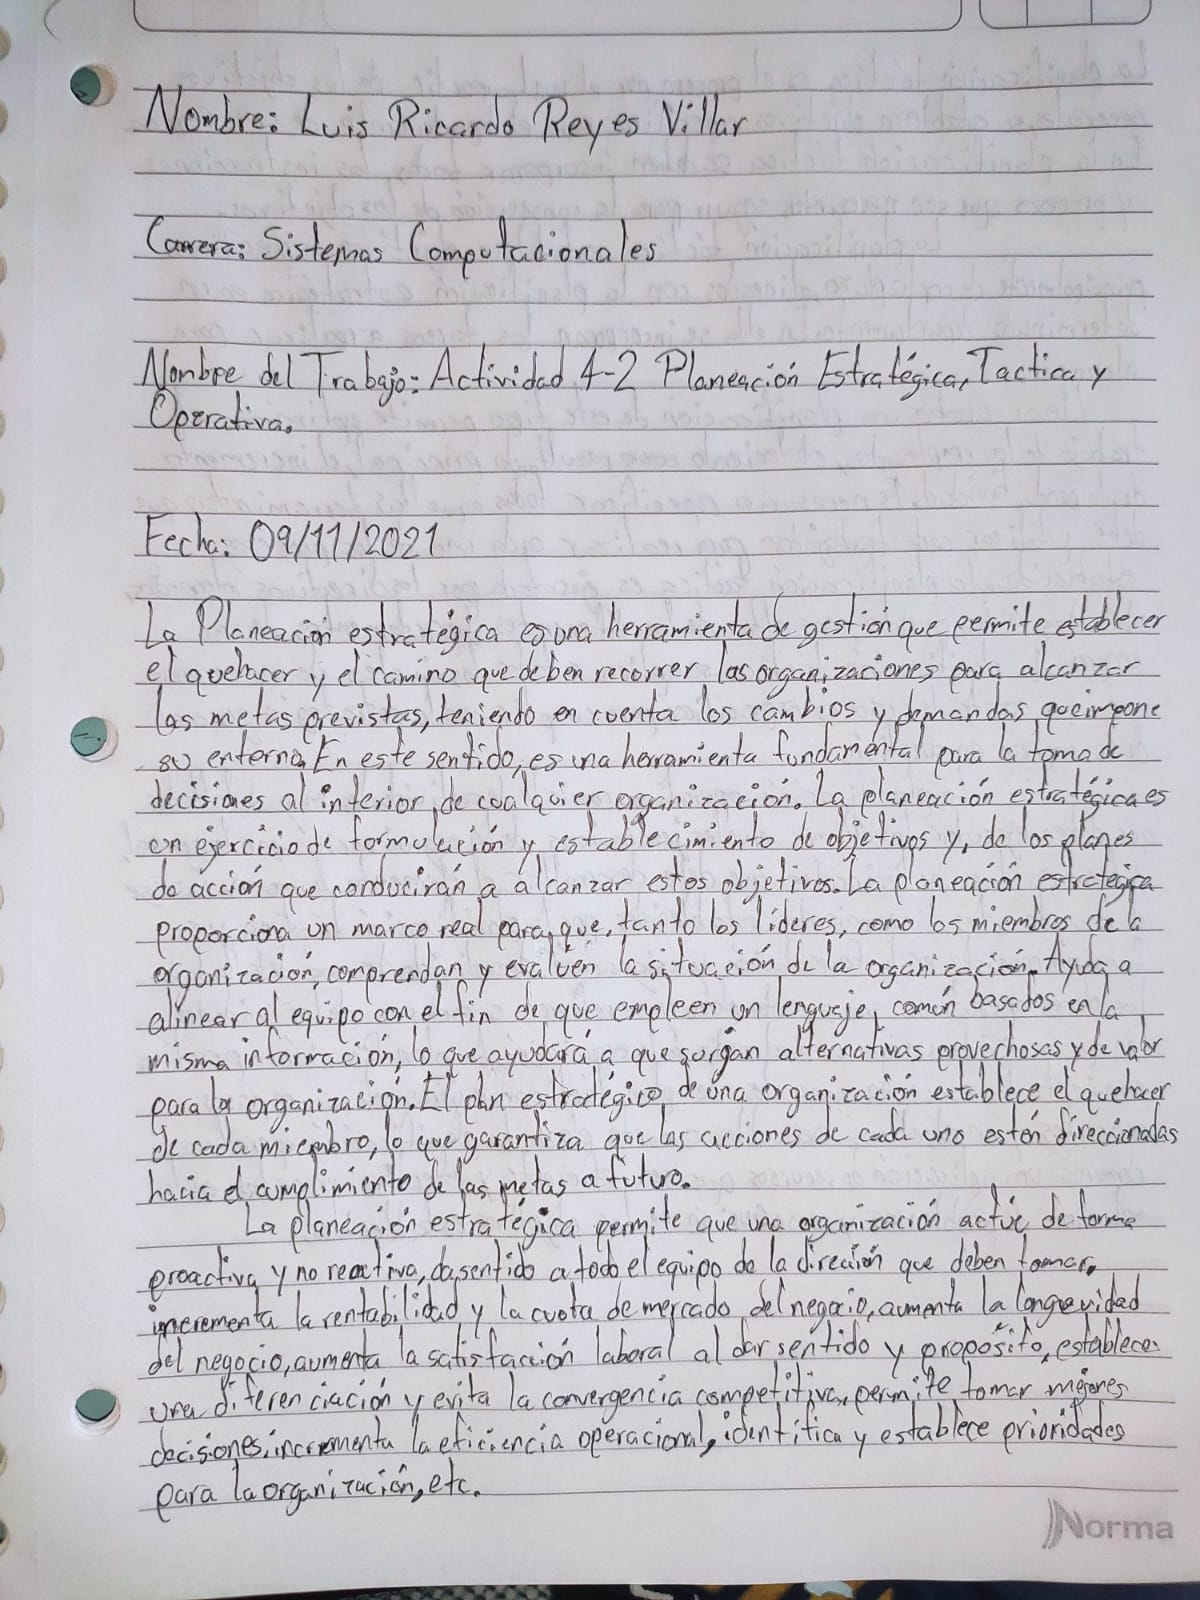 Nombre: Luis Ricardo Reyes Villar
Carrera: Sistemas Computacionales
Nombre del Trabajo: Actividad 4-2 Planeación Estratégica, Tactica y
Operativa.
Fecha: 09/11/2021
La Planeación estratégica es una herramienta de gestión que permite establecer
el quehacer y el camino que deben recorrer las organizaciones para alcanzar
las metas previstas, teniendo en cuenta los cambios y demandas que impone
su entorno. En este sentido, es una herramienta fundamental para la toma de
decisiones al interior de cualquier organización. La planeación estratégica es
un ejercicio de formulación y establecimiento de objetivos y, de los planes
de acción que conducirán a alcanzar estos objetivos. La planeación estrategica
proporciona un marco real para que, tanto los líderes, como los miembros de la
organización, comprendan y evalúen la situación de la organización. Ayuda a
alinear al equipo con el fin de que empleen un lenguaje común basados en la
misma información, lo que ayudará a que surgan alternativas provechosas y de valor
para la organización. El plan estratégico de una organización establece el quehacer
de cada miembro, lo que garantiza que las acciones de cada uno estén direccionadas
hacia el cumplimiento de las metas a futuro.
La planeación estratégica permite que una organización actúe de forma
proactiva y no reactiva, da sentido a todo el equipo de la direción que deben tomar,
incrementa la rentabilidad y la cuota de mercado del negocio, aumenta la longevidad
del negocio, aumenta la satisfacción laboral al dar sentido y propósito, establece
una diferenciación y evita la convergencia competitiva, permite tomar mejores
decisiones, incrementa la eficiencia operacional, identifica y establece prioridades
para la organización, etc.
Norma